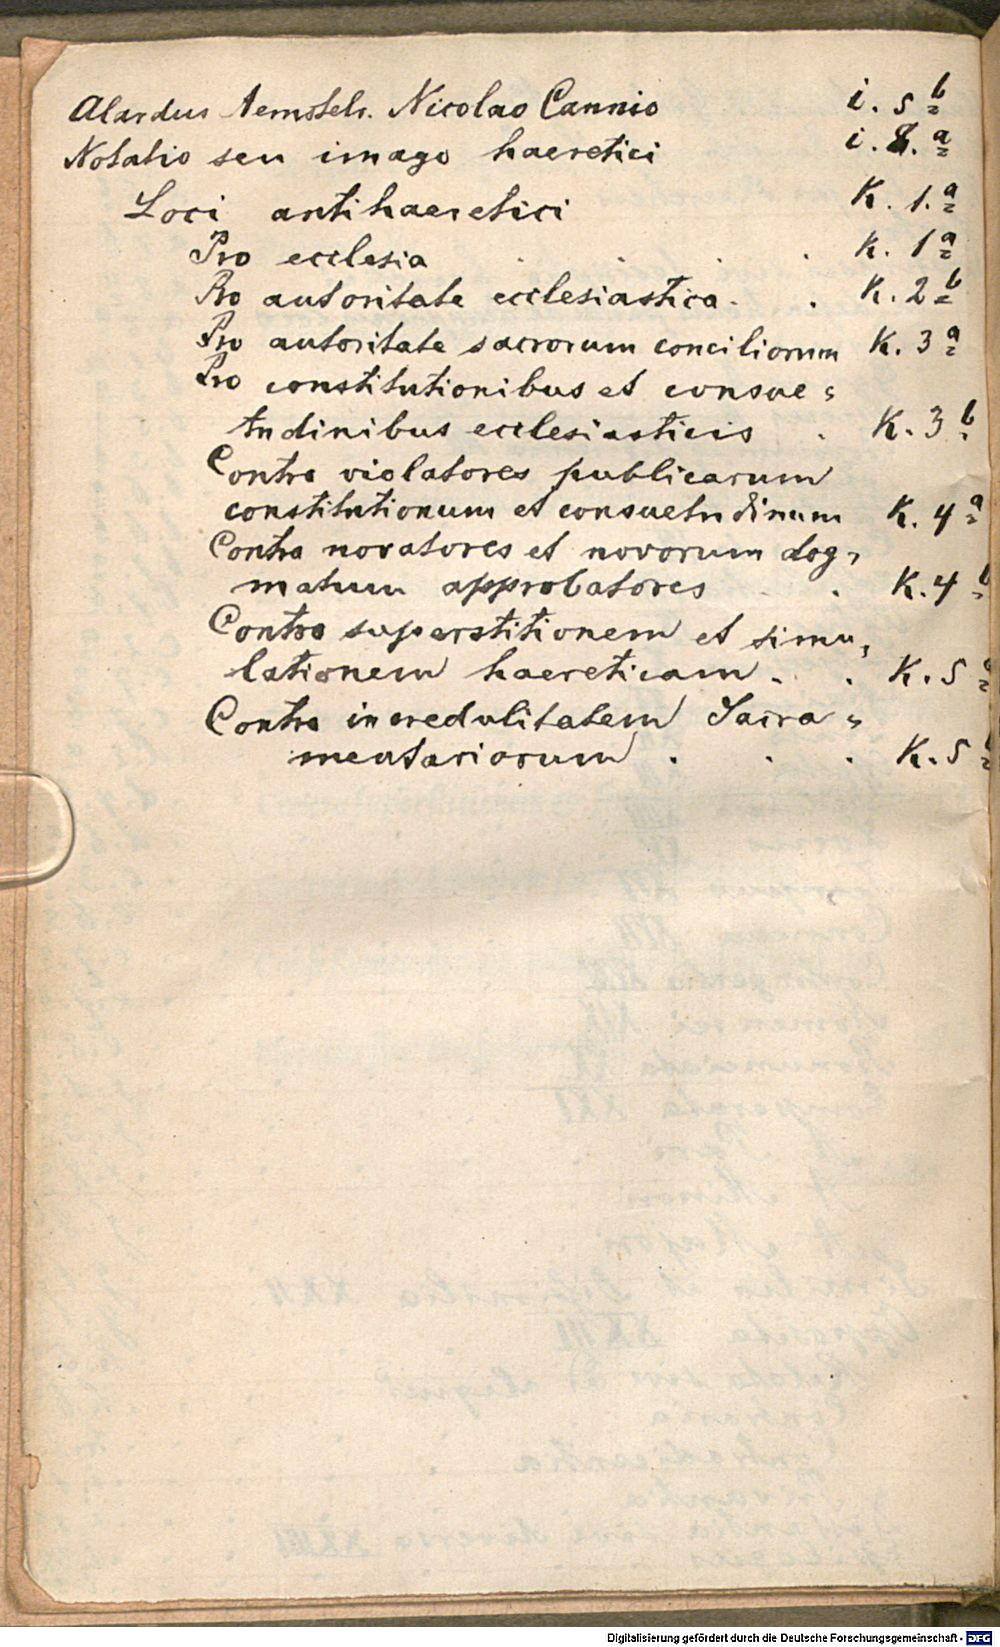 Alardus Aemstelr. Nicolao Cannio i. 5 b
Notatio seu imago haeretici i. 8. a
Loci antihaeretici K. 1. a
Pro ecclesia . . . . K. 1 a
Pro autoritate ecclesiastica . . K. 2 b
Pro autoritate sacrorum conciliorum K. 3 a
Pro constitutionibus et consue=
tudinibus ecclesiasticis . K. 3 b
Contra violatores publicarum
constitutionum et consuetudinum K. 4 a
Contra novatores et novorum dog=
matum approbatores . . K. 4 b
Contra superstitionem et simu=
lationem haereticam . . K. 5 a
Contra incredulitatem Sacra=
mentariorum . . . K. 5 b
Digitalisierung gefördert durch die Deutsche Forschungsgemeinschaft - DFG